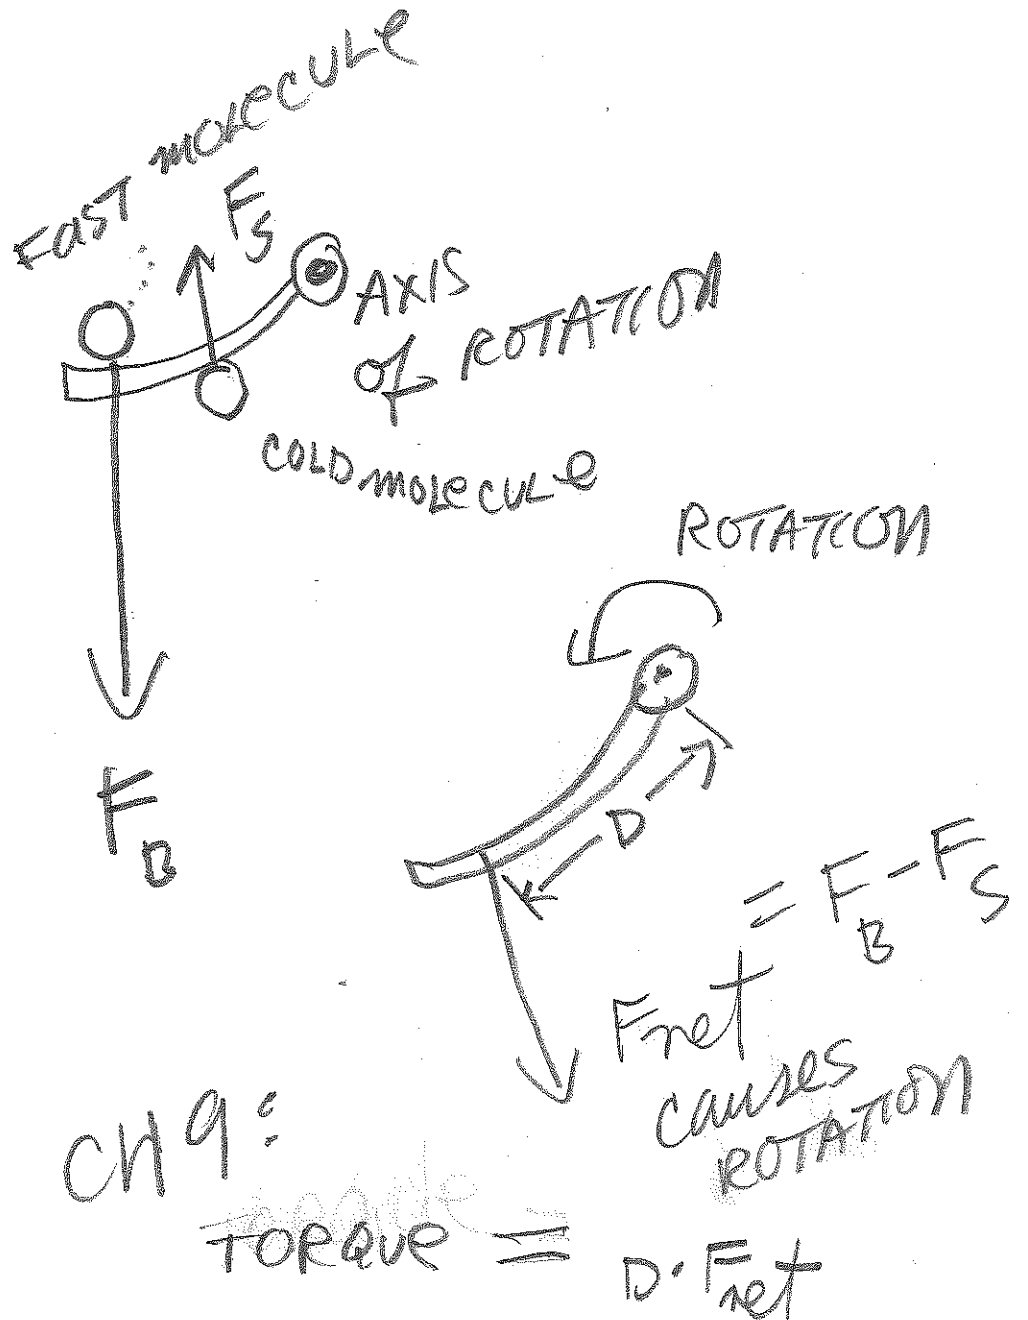 Fast molecule
F_S
AXIS
of ROTATION
COLD molecule
ROTATION
F_B
D
F_net = F_B - F_S
causes
ROTATION
CH 9:
TORQUE = D · F_net